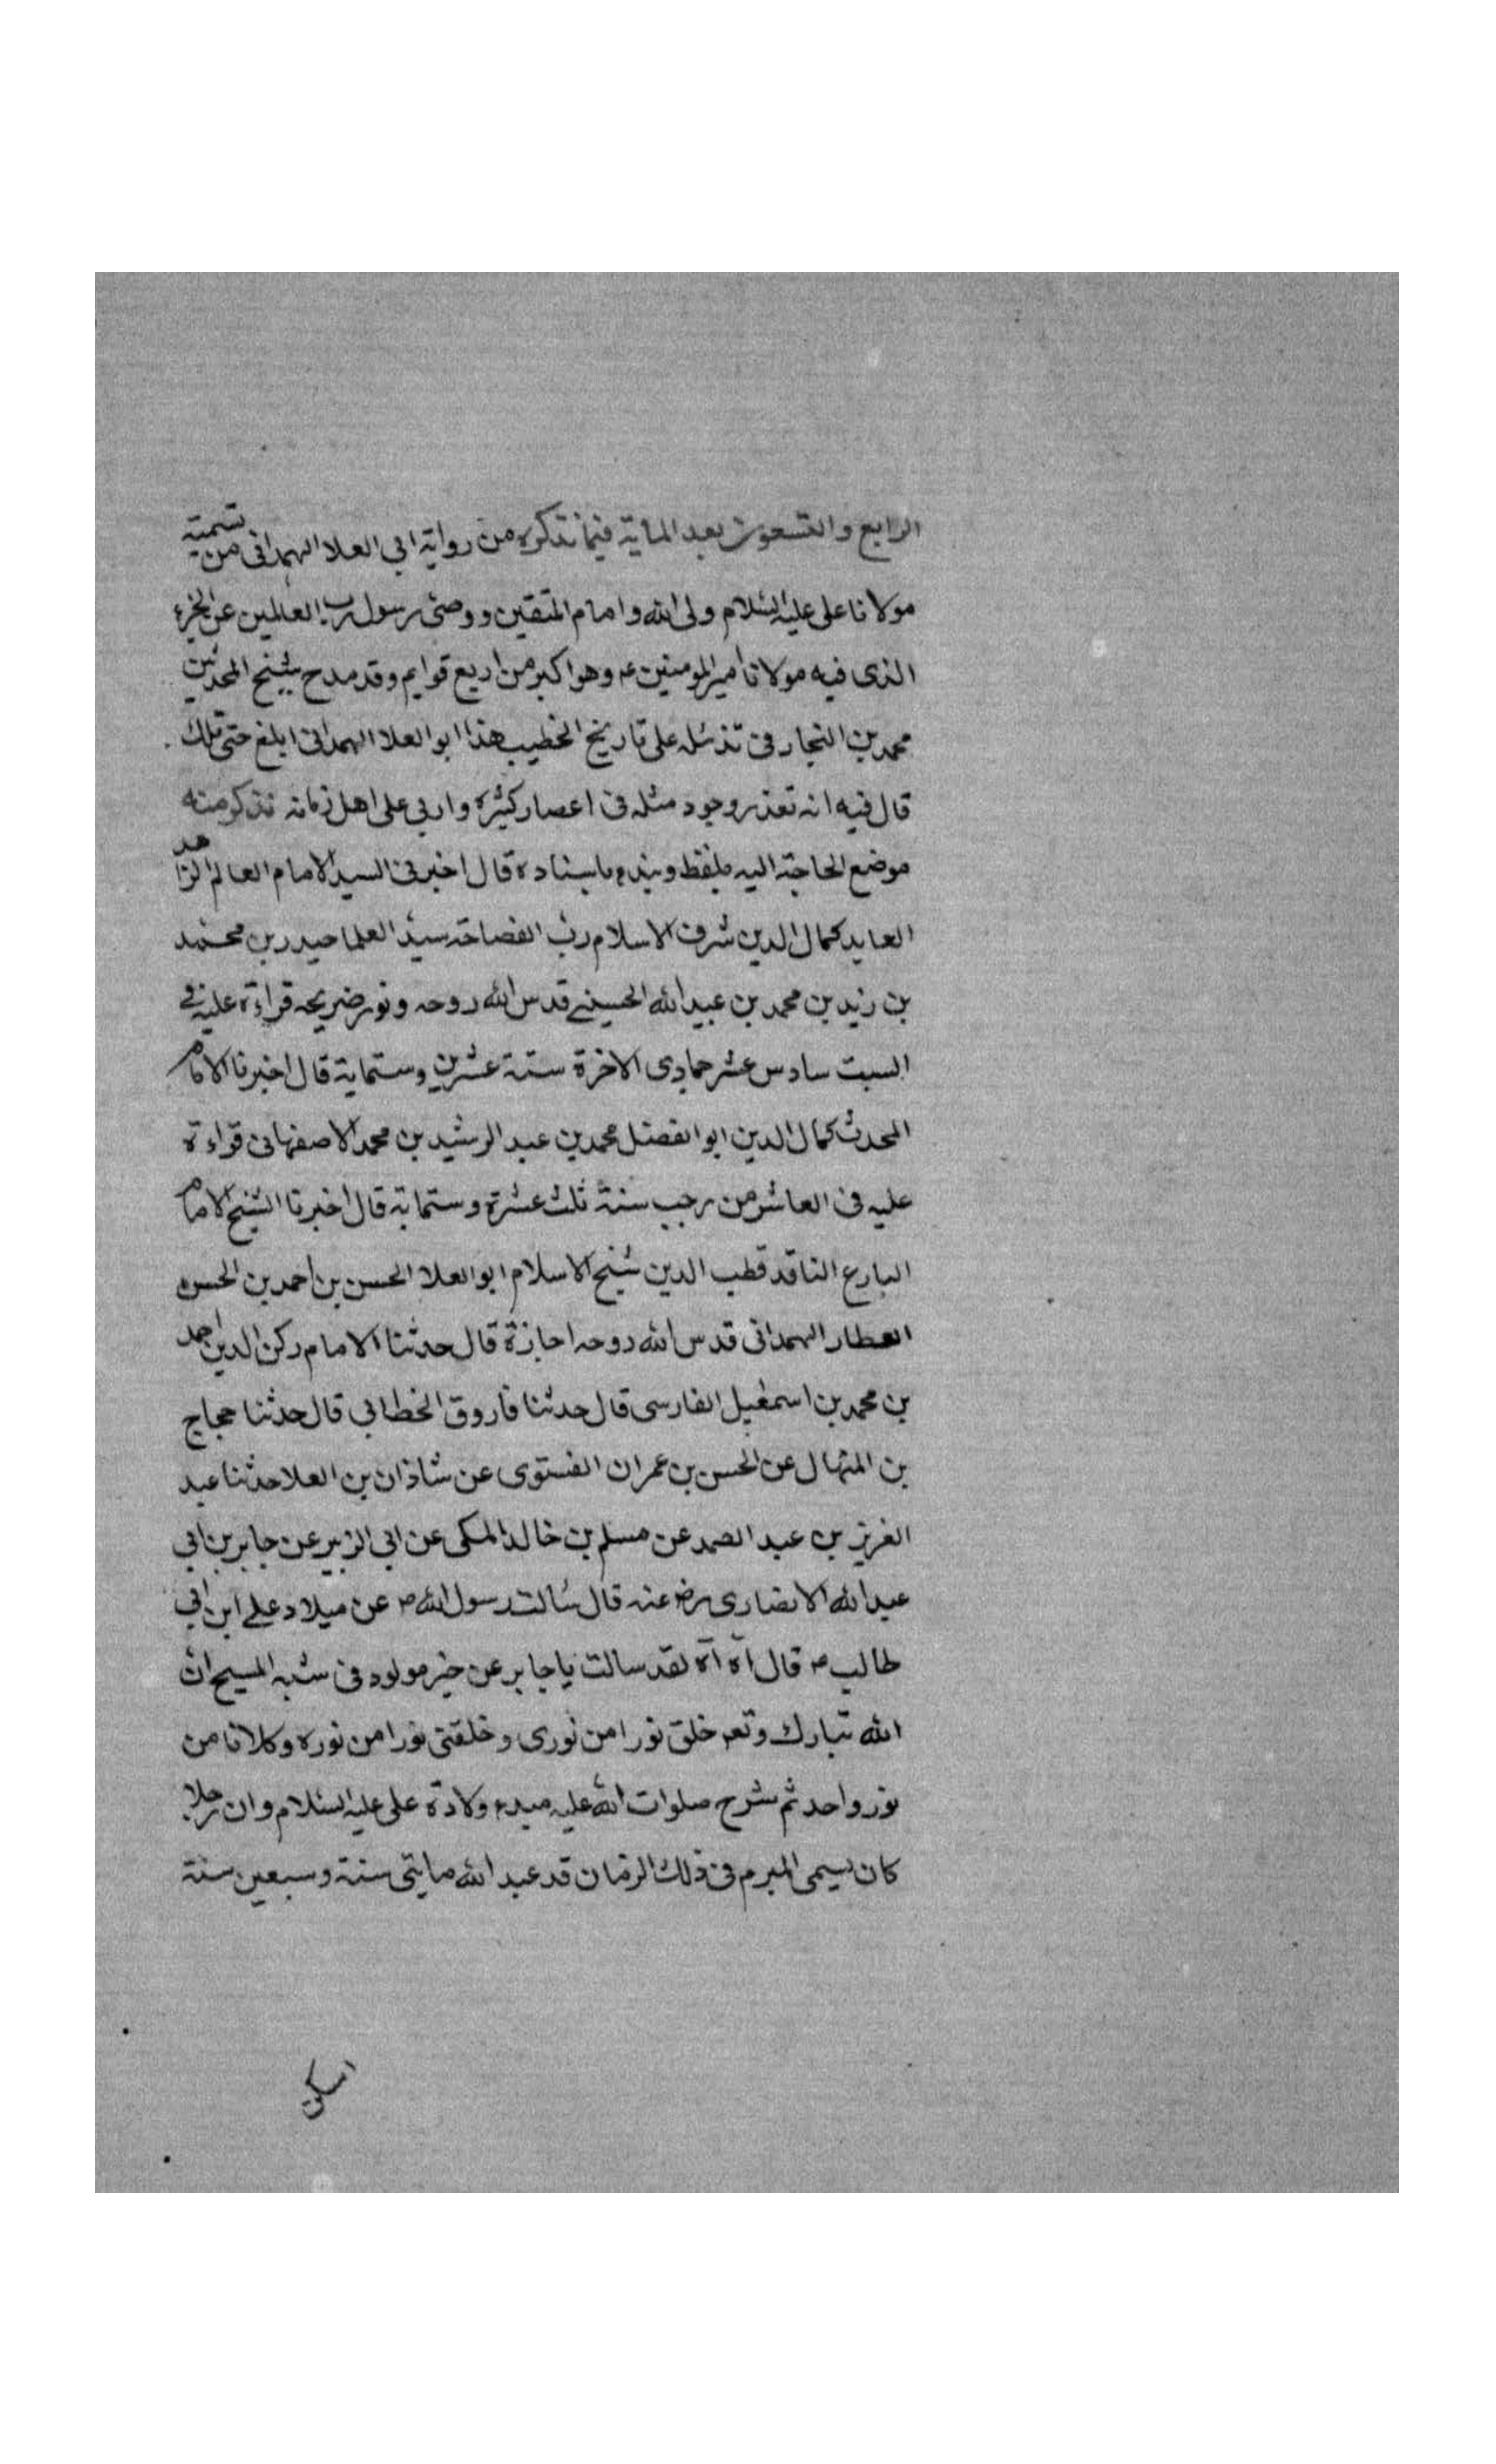 الرابع والتسعون بعد الماية فيما نذكره من رواية ابى العلا الهمدانى من تسمية
مولانا على عليه السلام ولى الله وامام المتقين ووصى رسول رب العالمين عن الجزء
الذى فيه مولانا امير المومنين ع وهو اكبر من اربع قوايم وقد مدح شيخ المحدثين
محمد بن النجار فى تذئله على تاريخ الخطيب هذا ابو العلا الهمدانى ابلغ حتى تلك
قال فيه انه تعذر وجود مثله فى اعصار كثيرة واربى على اهل زمانه نذكر منه
موضع الحاجة اليه بلفظ ونبدء باسناده قال اخبرنى السيد الامام العالم الزاهد
العابد كمال الدين شرف الاسلام رب الفصاحة سيد العلما حيدر بن محمد
بن زيد بن محمد بن عبيد الله الحسينى قدس الله روحه ونور ضريحه قراءة عليه فى
السبت سادس عشر جمادى الاخرة سنة عشرين وستماية قال اخبرنا الامام
المحدث كمال الدين ابو الفضل محمد بن عبد الرشيد بن محمد الاصفهانى قراءة
عليه فى العاشر من رجب سنة ثلث عشرة وستماية قال اخبرنا الشيخ الامام
البارع الناقد قطب الدين شيخ الاسلام ابو العلا الحسن بن احمد بن الحسن
العطار الهمدانى قدس الله روحه اجازة قال حدثنا الامام ركن الدين احمد
بن محمد بن اسمعيل الفارسى قال حدثنا فاروق الخطابى قال حدثنا حجاج
بن المنهال عن الحسن بن عمران الفستوى عن شاذان بن العلا حدثنا عبد
العزيز بن عبد الصمد عن مسلم بن خالد المكى عن ابى الزبير عن جابر بن ابى
عبد الله الانصارى رض عنه قال سالت رسول الله ص عن ميلاد على ابن ابى
طالب ع قال آه آه لقد سالت يا جابر عن خير مولود فى شبه المسيح ان
الله تبارك وتعم خلق نورا من نورى وخلقنى نورا من نوره وكلانا من
نور واحد ثم شرح صلوات الله عليه مبدء ولادة على عليه السلام وان رجلا
كان يسمى المبرم فى ذلك الزمان قد عبد الله مايتى سنة وسبعين سنة
اسكن